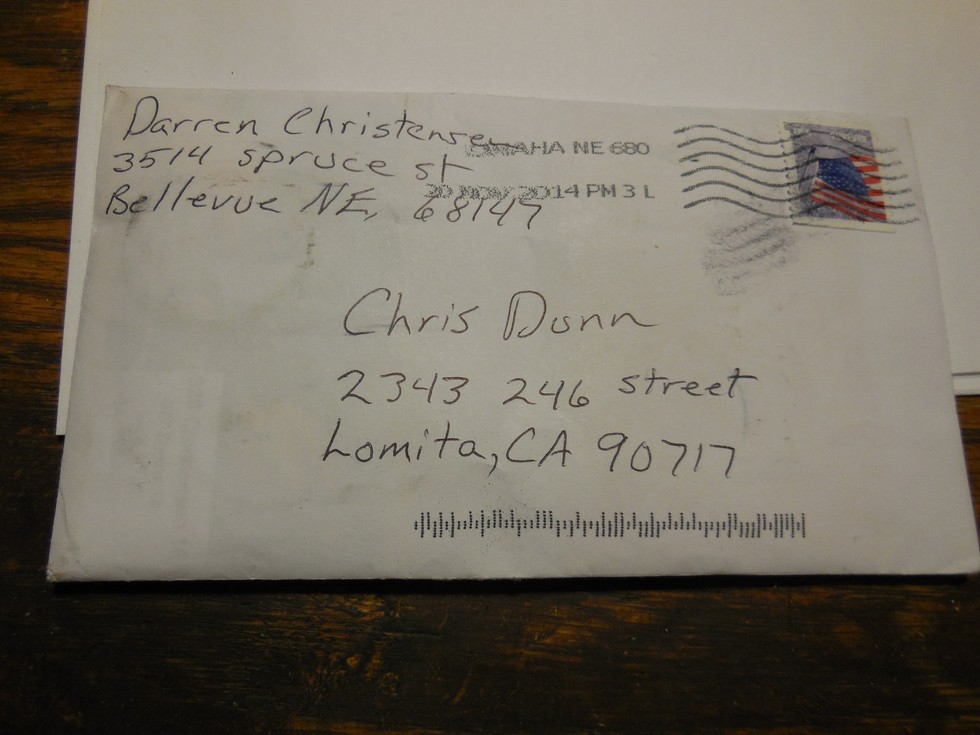 Darren Christensen
3514 spruce st
Bellevue NE, 68147
OMAHA NE 680
20 NOV 2014 PM 3 L
Chris Dunn
2343 246 street
Lomita, CA 90717